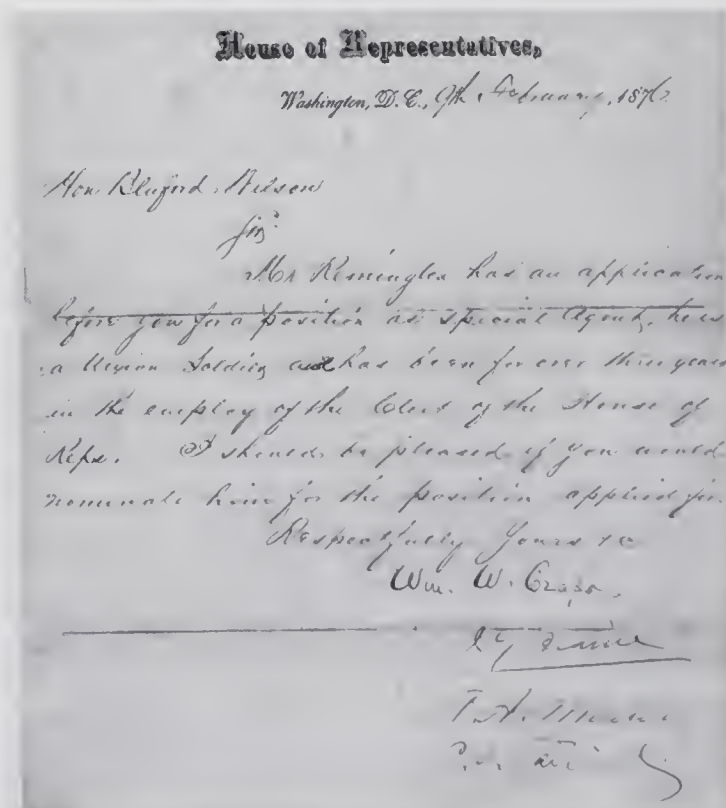 House of Representatives,
Washington, D.C., 9th February, 1876
Hon Bluford Wilson
Sir
Mr Remington has an application
before you for a position as special Agent, he is
a Union Soldier and has been for over three years
in the employ of the Clerk of the House of
Reps. I should be pleased if you would
nominate him for the position applied for
Respectfully Yours &c
Wm. W. Crapo.